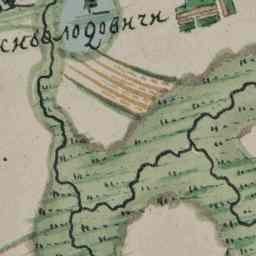 снволодовичи